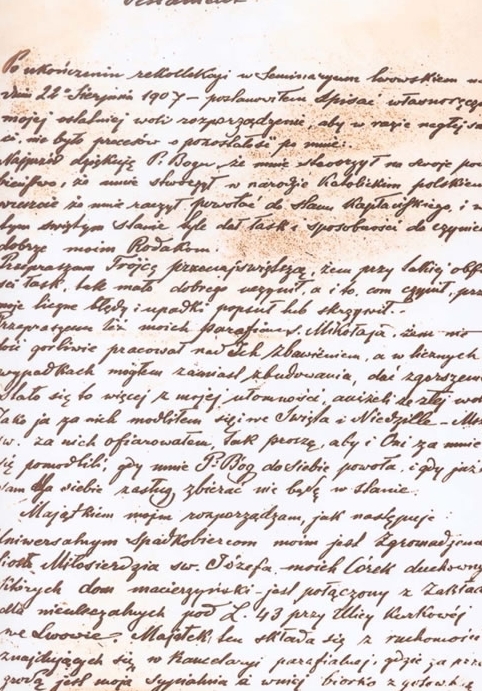 Testament.
Po ukończeniu rekollekcyi w Seminaryum lwowskiem
dnia 22go Sierpnia 1907 – postanowiłem spisać własnoręcznie
mojej ostatniej woli rozporządzenie, aby w razie nagłej
ci, nie było procesów o pozostałość po mnie:
Najprzód dziękuję P. Bogu, że mnie stworzył na swoje po
bieństwo, że mnie stworzył w narodzie Katolickim polskiem
wreszcie że mnie raczył powołać do stanu Kapłańskiego, i w
tym świętym stanie tyle dał łask i sposobności do czynien
dobrze moim Rodakom.
Przepraszam Trójcę przenajświętszą, żem przy takiej obfi
ści łask, tak mało dobrego uczynił, a i to, com czynił, prze
moje liczne błędy i upadki popsuł lub skrzywił..
Przepraszam też moich parafian św. Mikołaja, żem nie
dość gorliwie pracował nad Ich zbawieniem, a w licznych
wypadkach mogłem zamiast zbudowania, dać zgorszenie
Stało się to więcej z mojej ułomności, aniżeli ze złej wol
Jako ja za nich modliłem się i we Święta i Niedziele – Msz
św. za nich ofiarowałem, tak proszę, aby i Oni za mnie
się pomodlili, gdy mnie P. Bóg do siebie powoła, i gdy już
sam dla siebie zasług zbierać nie będę w stanie.
Majątkiem moim rozporządzam, jak następuje:
Uniwersalnym spadkobiercom moim jest Zgromadzenie
Sióstr Miłosierdzia św. Józefa – moich Córek duchowny
których dom macierzyński – jest połączony z Zakład
dla nieuleczalnych pod L. 43 przy Ulicy Kurkowéj
we Lwowie. Majątek ten składa się z ruchomości
znajdujących się w Kancelaryi parafialnej, gdzie za
jest moja sypialnia a w niej biórko z